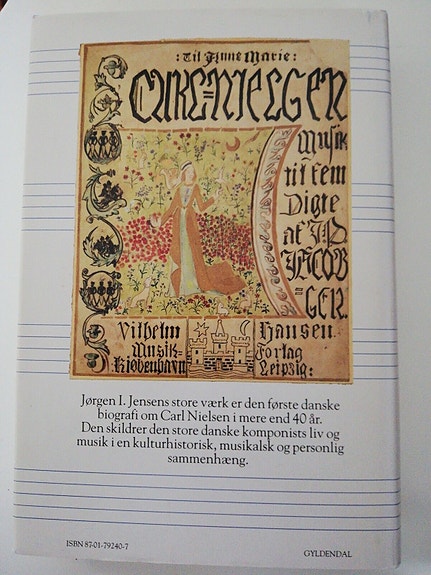 : Til Anne Marie :
CARL=NIELSEN
Musik
til fem
Digte
af J.P.
JACOB
=SEN.
Vilhelm Hansen
Musik- Forlag
Kjöbenhavn Leipzig:
Jørgen I. Jensens store værk er den første danske
biografi om Carl Nielsen i mere end 40 år.
Den skildrer den store danske komponists liv og
musik i en kulturhistorisk, musikalsk og personlig
sammenhæng.
ISBN 87-01-79240-7
GYLDENDAL